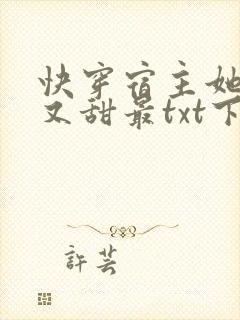 快穿宿主她
又甜最txt下
許芸